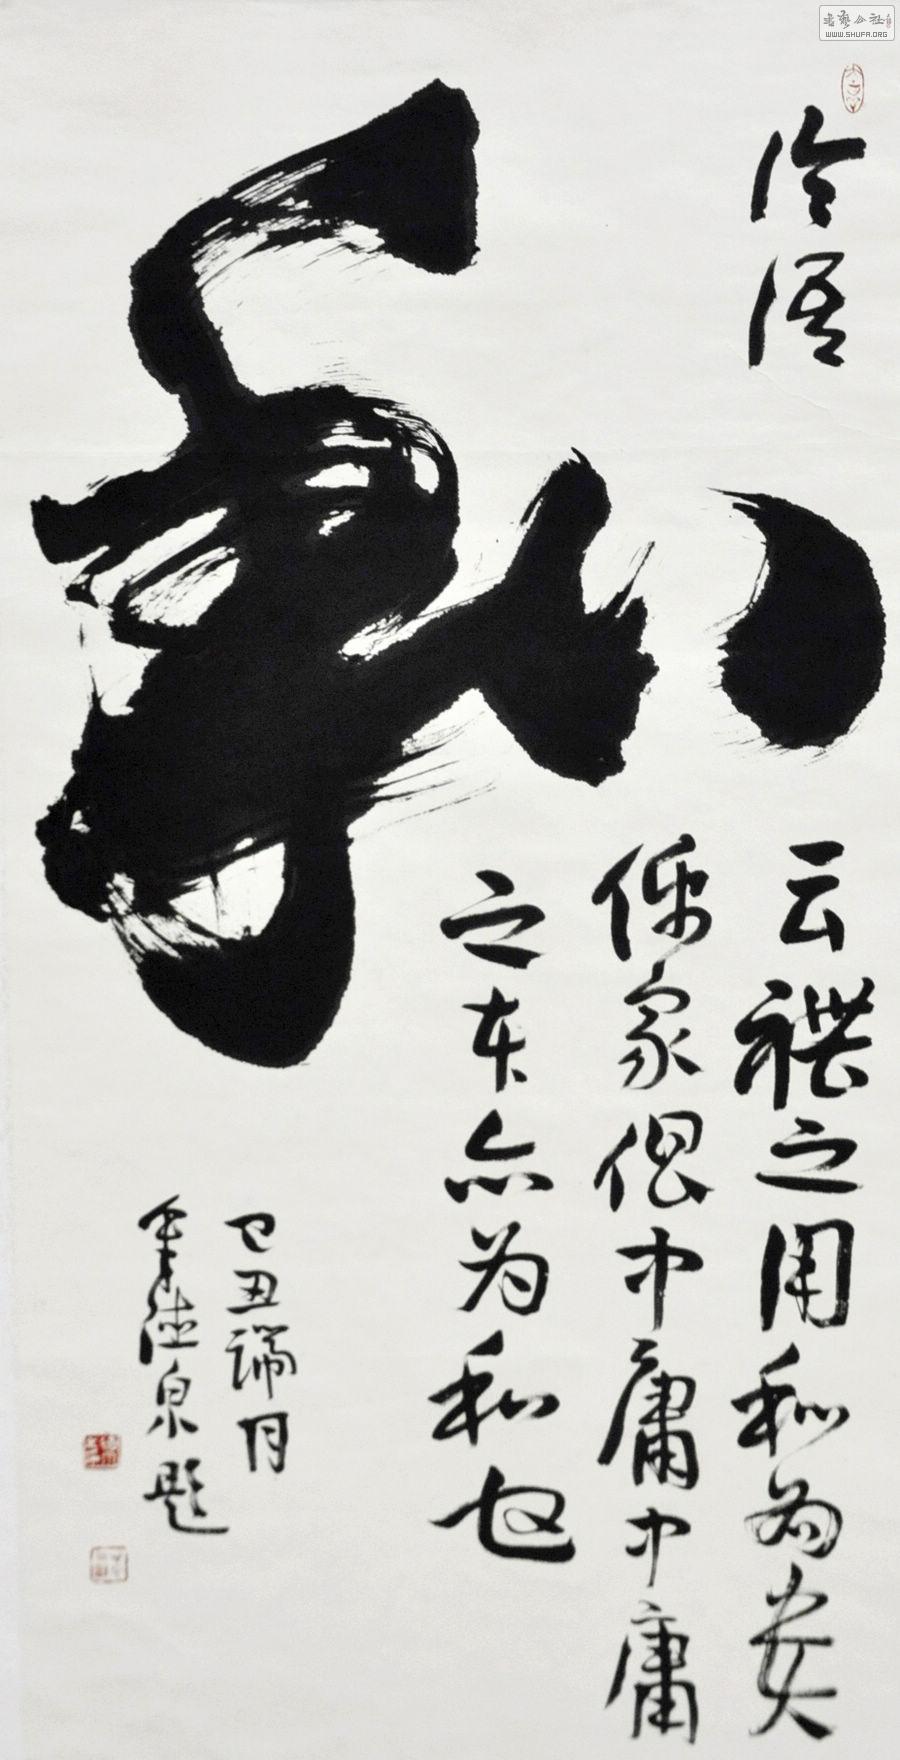 書藝公社
WWW.SHUFA.ORG
論語
和
云禮之用和為貴
儒家倡中庸中庸
之本亦为和也
己丑端月
德泉題